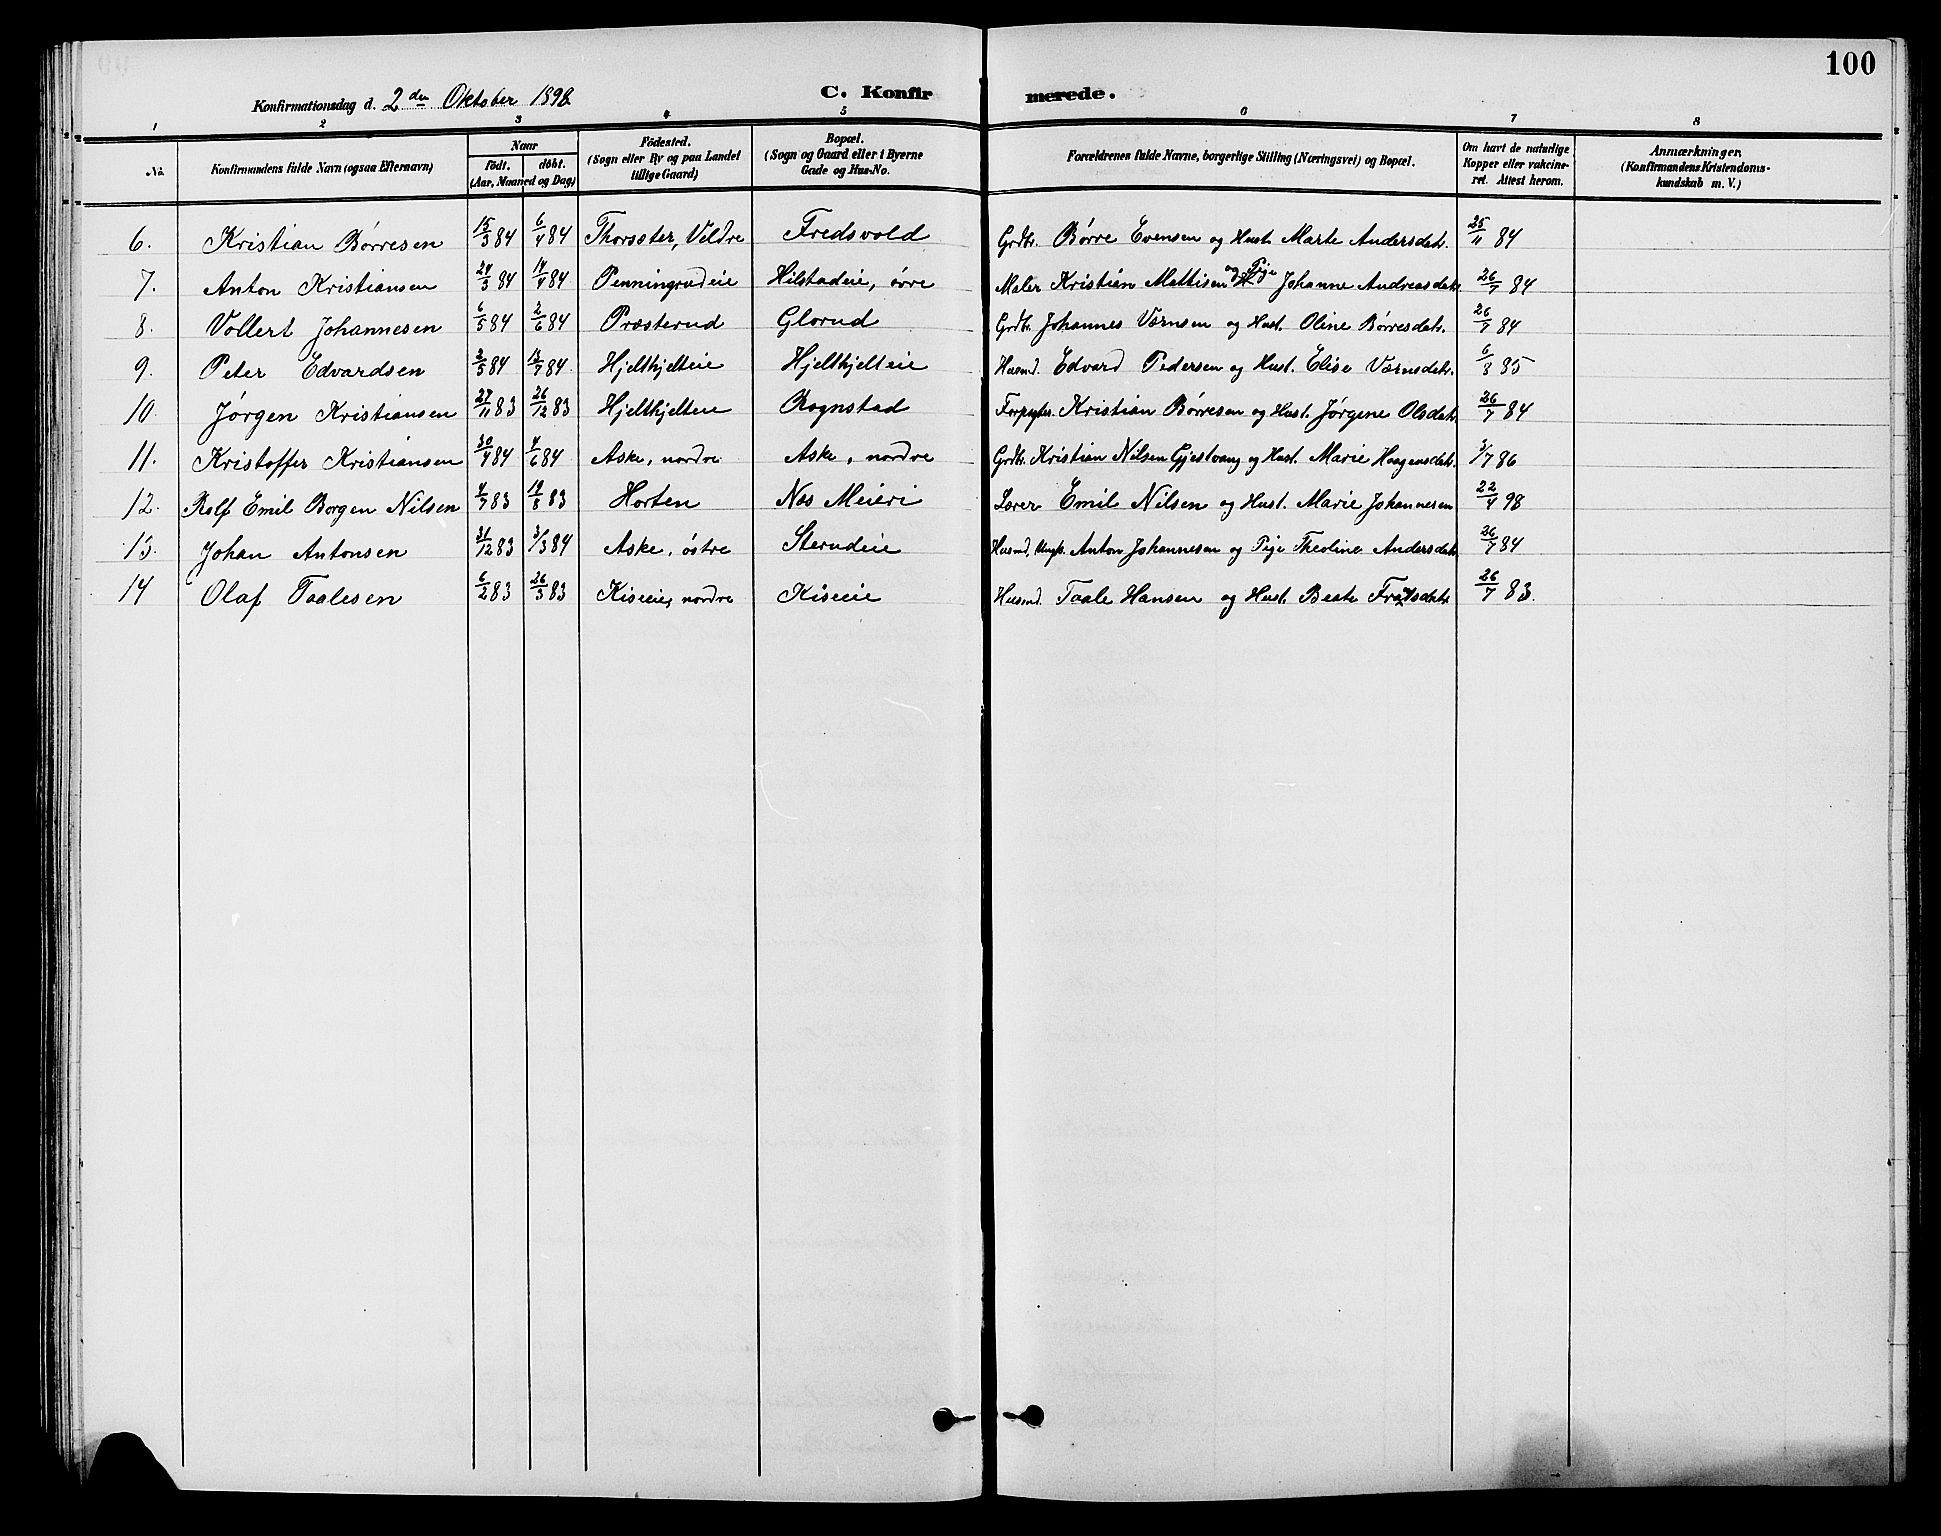 100
Konfirmationsdag d. 2den Oktober 1898
C. Konfirmerede.
1 2 3 4 5 6 7 8
No. Konfirmandens fulde Navn (ogsaa Efternavn) Naar födt. döbt. (Aar, Maaned og Dag) Födested. (Sogn eller By og paa Landet tillige Gaard) Bopæl. (Sogn og Gaard eller i Byerne Gade og Hus-No. Forældrenes fulde Navne, borgerlige Stilling (Næringsvei) og Bopæl. Om havt de naturlige Kopper eller vakcineret. Attest herom. Anmærkninger, (Konfirmandens Kristendomskundskab m. V.)
6. Kristian Børresen 15/3 84 6/4 84 Thorsæter, Veldre Fredsvold Grdbr. Børre Evensen og Hust. Marte Andersdatr. 25/11 84
7. Anton Kristiansen 24/3 84 14/4 84 Penningrudeie Hilstadeie, øvre Maler Kristian Mattisen og Pige Johanne Andreasdatr 26/7 84
8. Vollert Johannesen 6/5 84 2/6 84 Præsterud Glorud Grdbr. Johannes Værnsen og Hust. Oline Børresdatr. 26/7 84
9. Peter Edvardsen 2/5 84 13/7 84 Hjelthjelteie Hjelthjelteie Husmd. Edvard Pedersen og Hust. Elise Værnsdatr. 6/3 85
10. Jørgen Kristiansen 27/11 83 26/12 83 Hjelthjelteie Rognstad Forpagter. Kristian Børresen og Hust. Jørgene Olsdatr. 26/7 84
11. Kristoffer Kristiansen 30/4 84 4/6 84 Aske, nordre Aske, nordre Grdbr. Kristian Nilsen Gjestvang og Hust. Marie Haagensdatr. 3/7 86
12. Rolf Emil Borgen Nilsen 4/7 83 19/8 83 Horten Næs Meieri Lærer Emil Nilsen og Hust. Marie Johannesen 22/4 98
13. Johan Antonsen 31/12 83 3/3 84 Aske, østre Sterudeie Husmd. Ungk. Anton Johannesen og Pige Theoline Andersdatr. 26/7 84
14 Olaf Taalesen 6/2 83 26/3 83 Kiseeie, nordre Kiseeie Husmd. Taale Hansen og Hust. Beate 26/7 83.